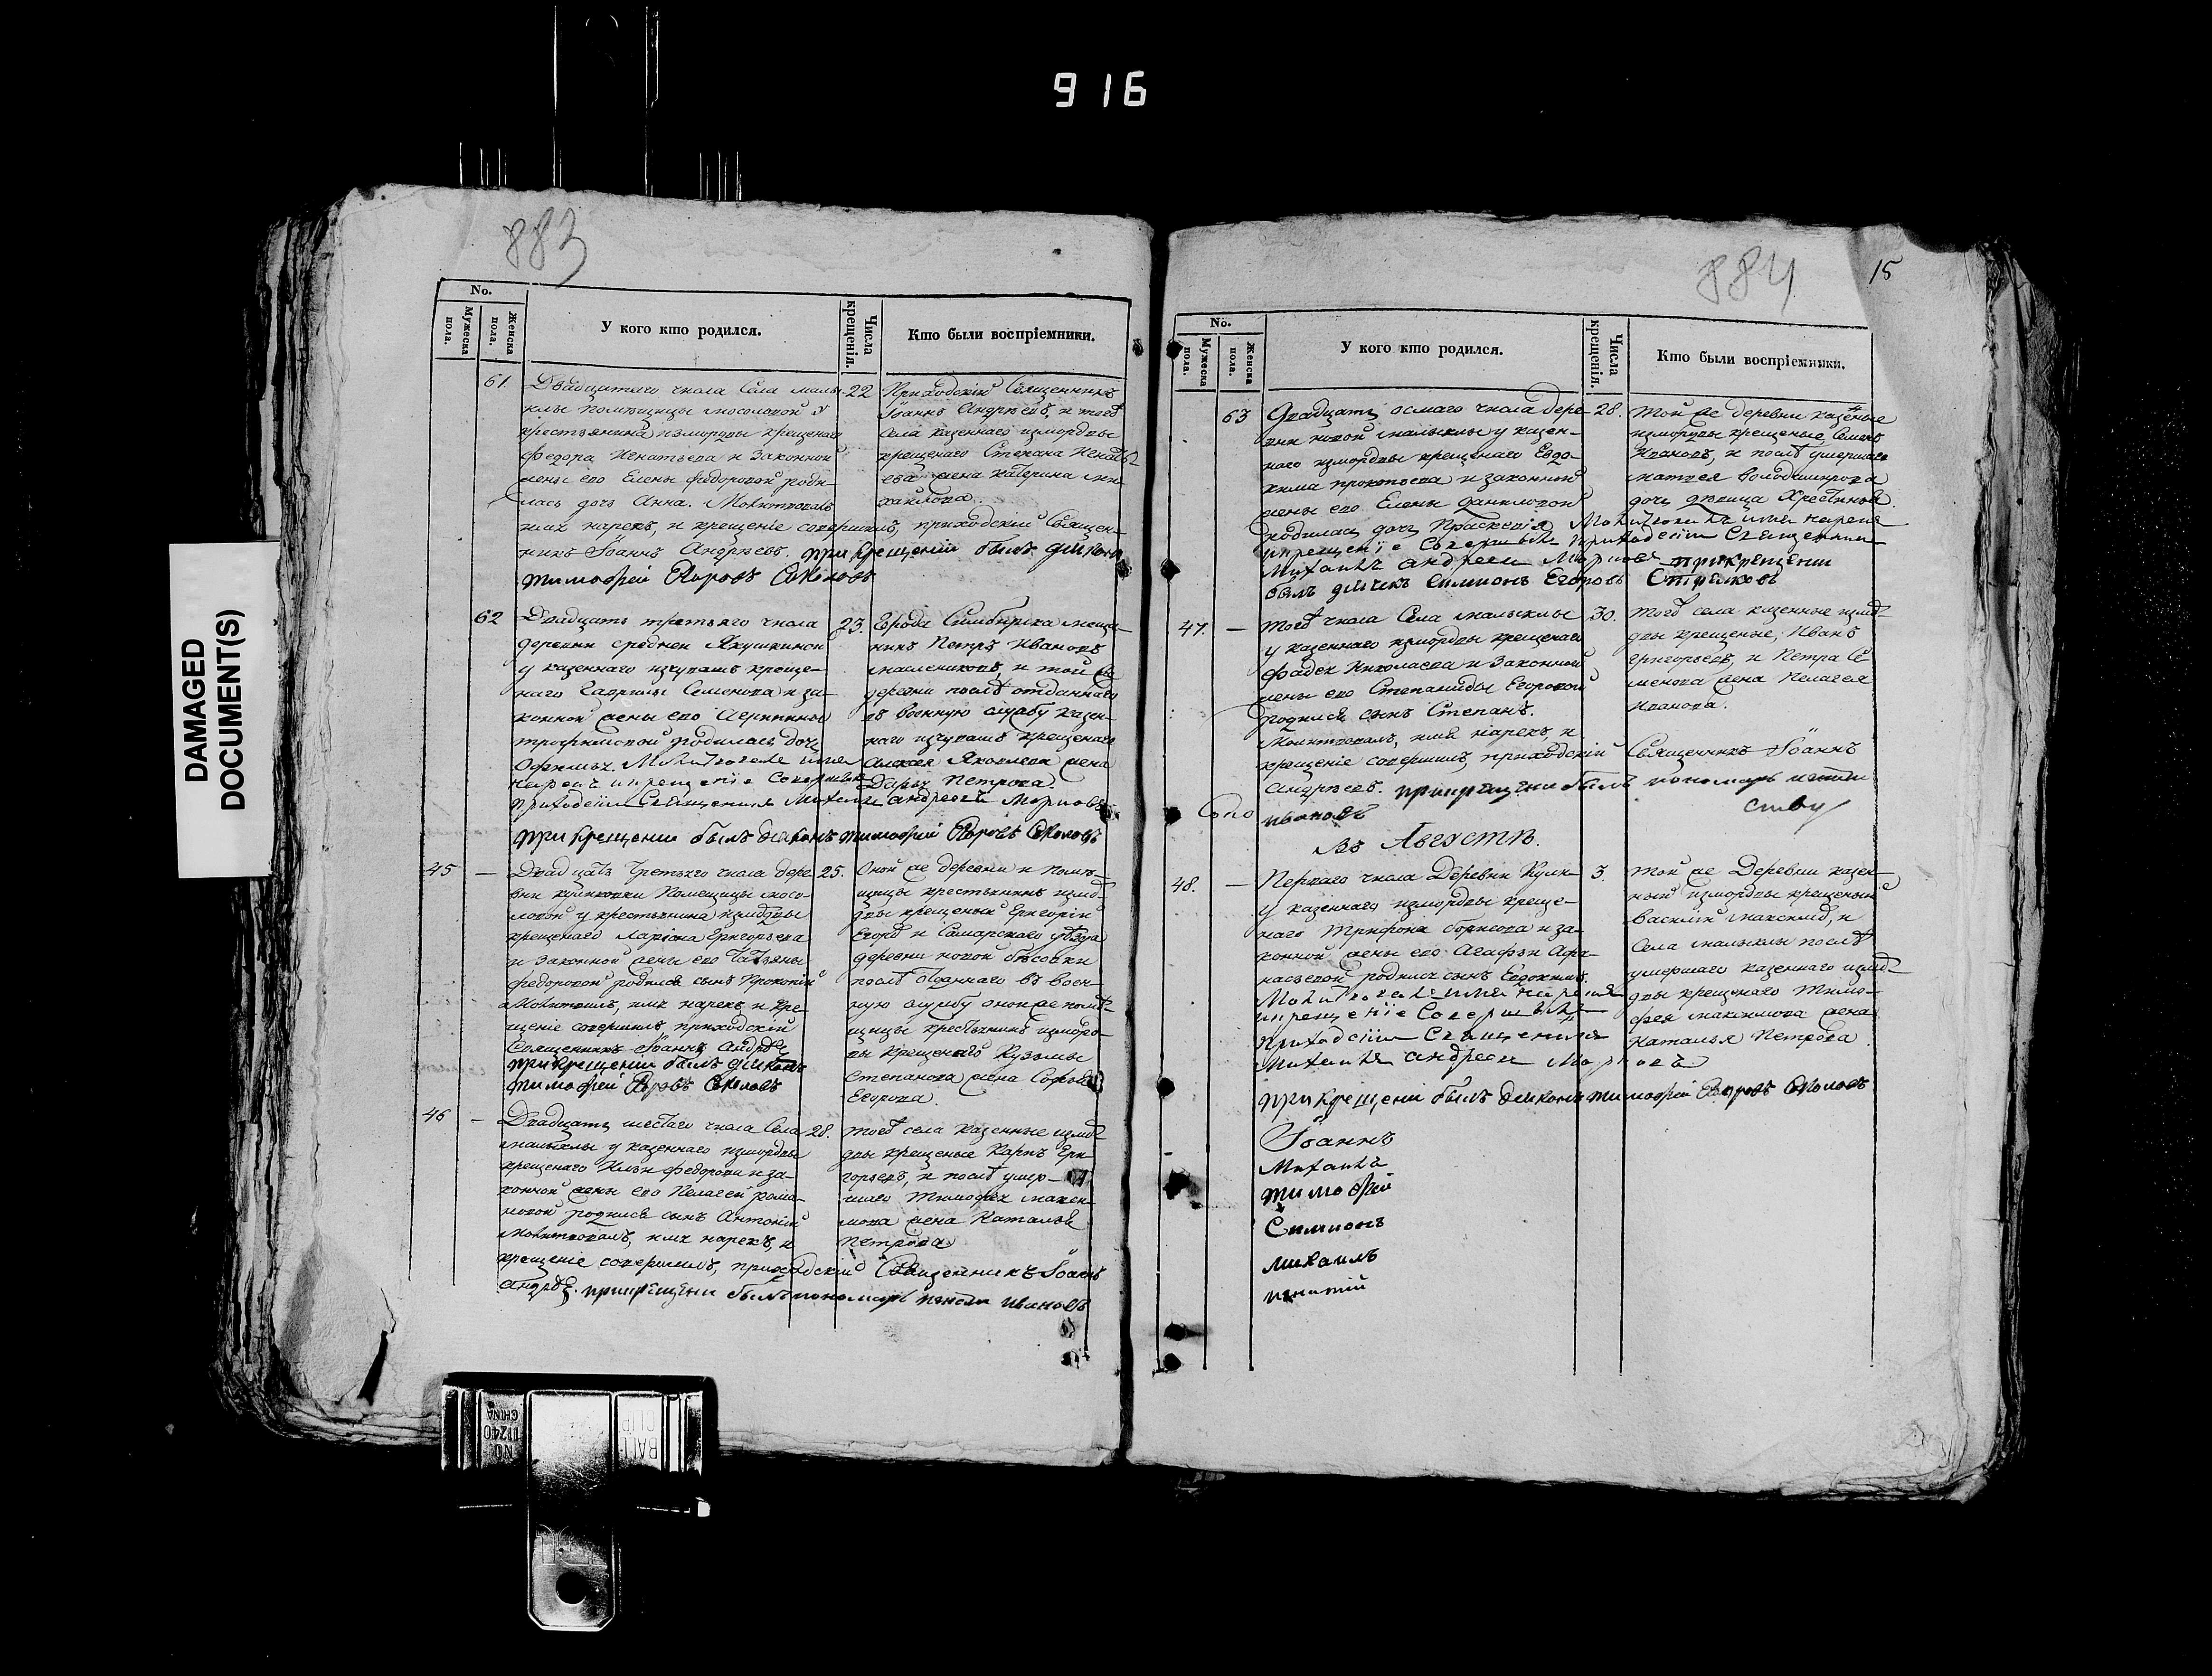 916
DAMAGED
DOCUMENT(S)
883
No.
Мужеска
пола.
Женска
пола.
У кого кто родился.
Числа
крещенія.
Кто были воспріемники.
61.
Двадцатаго числа Села малы-
клы помѣщицы мосоловой у
крестьянина измордвы крещенаго
Федора Игнатьева и законной
жены его Елены Федоровой роди-
лась дочь Анна. Молитвовалъ
имя нарекъ, и крещеніе совершилъ, приходскій Священ-
никъ Іоаннъ Андрѣевъ. при крещеніи былъ діяконъ
тимофей
22
Приходскій Священникъ
Іоаннъ Андрѣевъ, и тогоъ
села казеннаго измордвы
крещенаго Степана Игнать-
ева жена катерина ми-
хайлова.
62
Двадцать третьяго числа
деревни средней Якушкиной
у казеннаго изчувашъ креще-
наго Гаврилы Семенова и за-
конной жены его
трофимовой родилась дочь
Молитвовалъ имя
нарекъ и крещеніе совершилъ
приходскій Священникъ Михаилъ андреевъ
при крещеніи былъ діяконъ тимофей
23.
Города Симбирска меща-
нинъ Петръ Ивановъ
и той же
деревни послѣ отданнаго
въ военную службу казен-
наго изчувашъ крещенаго
Алексея Яковлева жена
Дарья Петрова.
45
Двадцать третьяго числа дере-
вни куликовки Помещицы мосо-
ловой у крестьянина измордвы
крещенаго Ларіона Григорьева
и законной жены его Татьяны
федоровой родился сынъ Прокопій
Молитвовалъ, имя нарекъ, и кре-
щеніе совершилъ приходскій
Священникъ Іоаннъ Андрѣевъ
при крещеніи былъ діяконъ
тимофей
25.
Оной же деревни и помѣ-
щицы крестьянинъ измор-
двы крещеный Григорій
Егоровъ и Самарскаго уѣзда
деревни новой бѣсовки
послѣ отданнаго въ воен-
ную службу оной же помѣ-
щицы крестьянина измор-
вы крещенаго Кузьмы
Степанова жена Софья
Егорова.
46
Двадцать шестаго числа Села
малыклы у казеннаго измордвы
крещенаго Ильи федорова и за-
конной жены его Пелагеи рома-
новой родился сынъ Антоній
Молитвовалъ, имя нарекъ, и
крещеніе совершилъ, приходскій Священникъ Іоаннъ
Андрѣевъ. при крещеніи былъ пономарь игнатій ивановъ
28.
тогоъ села казенные измор-
двы крещеные Карпъ Гри-
горьевъ, и послѣ умер-
шаго тимофея макси-
мова жена Наталья
Петрова
884
15
No.
Мужеска
пола.
Женска
пола.
У кого кто родился.
Числа
крещенія.
Кто были воспріемники.
63
Двадцать осмаго числа дере-
вни новой малыклы у казен-
наго измордвы крещенаго Евдо-
кима прокопьева и законной
жены его Елены даниловой
родилась дочь Праскевія Молитвовалъ имя нарекъ
и крещеніе совершилъ приходскій Священникъ
Михаилъ андреевъ при крещеніи
былъ діячекъ симионъ Егоровъ
28.
той же деревни казенные
измордвы крещеные, Семенъ
Ивановъ, и послѣ умершаго
матвея володимирова
дочь девица Хрестинья.
47.
тогоъ числа Села малыклы
у казеннаго измордвы крещенаго
фадея Николаева и законной
жены его Степаниды Егоровой
родился сынъ Степанъ.
Молитвовалъ, имя нарекъ, и
крещеніе совершилъ, приходскій Священникъ Іоаннъ
Андрѣевъ. при крещеніи былъ пономарь игнатій
ивановъ
30.
тогоъ села казенные измор-
двы крещеные, Иванъ
григорьевъ, и Петра Се
менова жена Пелагея
Иванова.
Въ Августѣ.
48.
Перваго числа Деревни Кули-
у казеннаго измордвы креще-
наго Трифона борисова и за-
конной жены его Агафьи Афа-
насьевой родился сынъ Евдокимъ.
Молитвовалъ имя нарекъ
и крещеніе совершилъ
приходскій Священникъ
Михаилъ андреевъ
при крещеніи былъ діяконъ тимофей
3.
той же Деревни казен-
ный измордвы крещеный
василій максимовъ, и
села малыклы послѣ
умершаго казеннаго измор-
двы крещенаго Тимо-
фея максимова жена
Наталья Петрова
Іоаннъ
Михаилъ
тимофей
Симионъ
михаилъ
игнатій
BALL
CLIP
NO
11240
CHINA